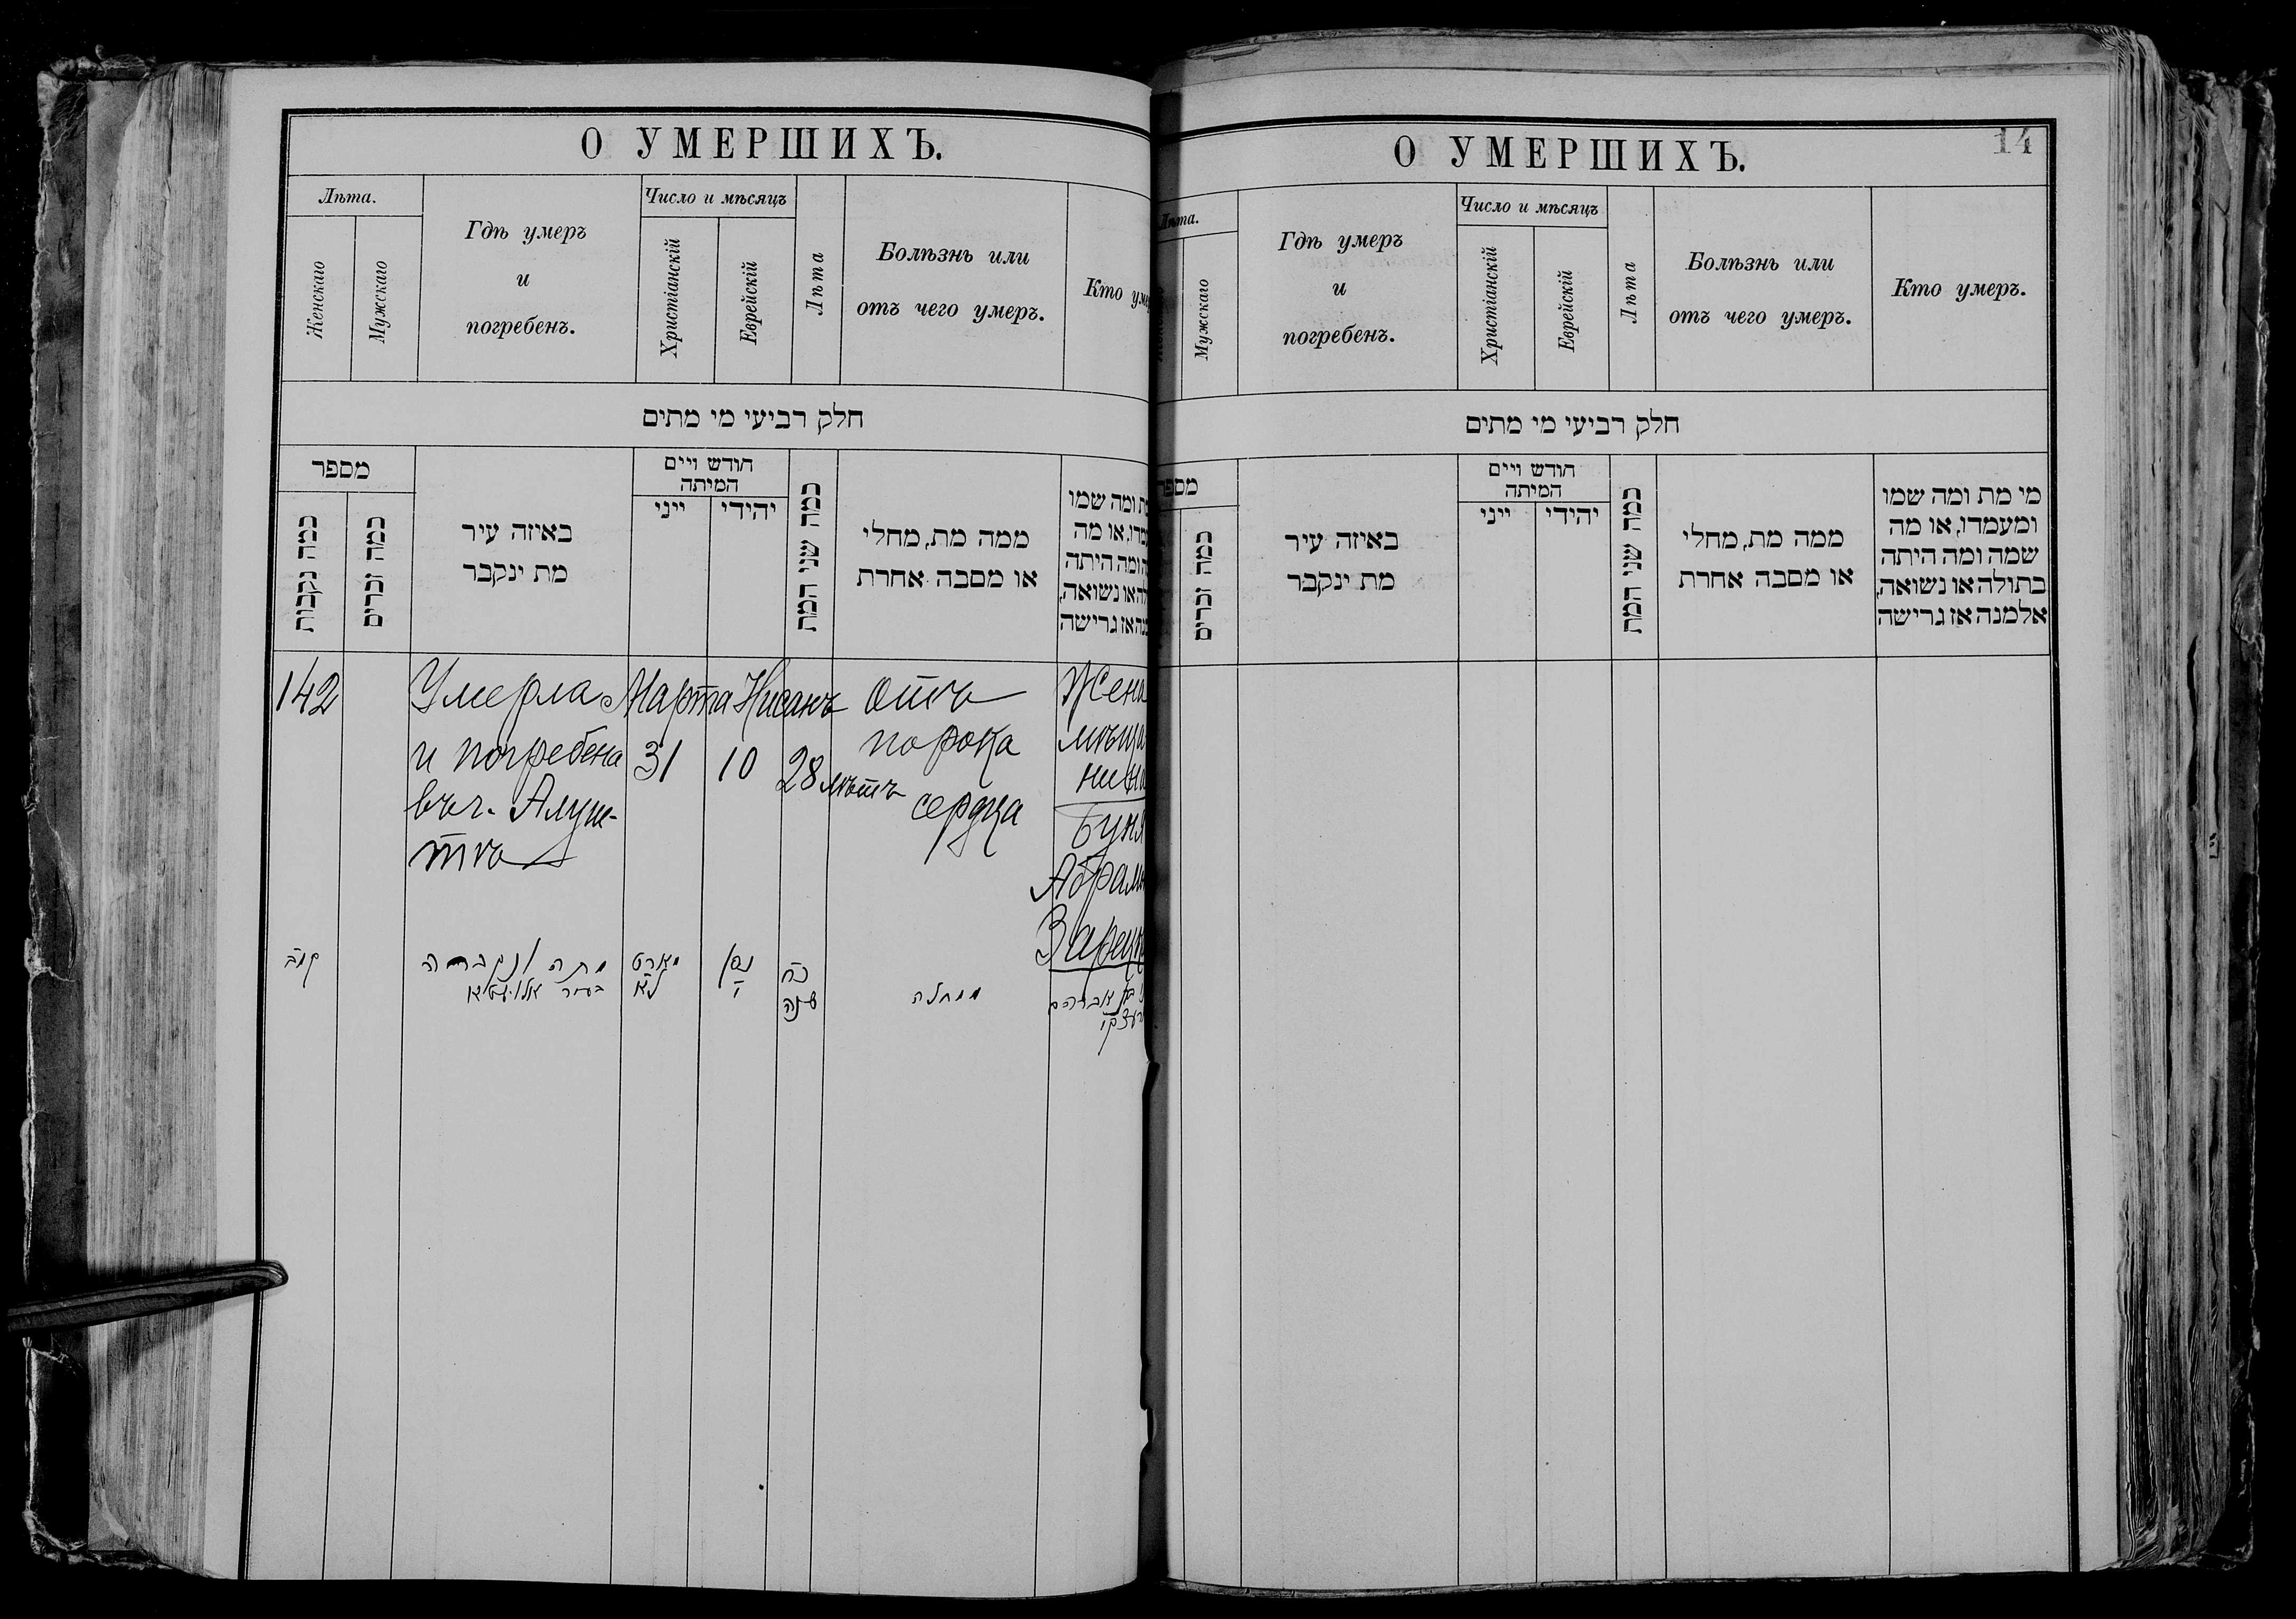 О УМЕРШИХЪ.
Лѣта.
Женскаго
Мужскаго
Гдѣ умеръ
и
погребенъ.
Число и мѣсяцъ
Христіанскій
Еврейскій
Лѣта
Болѣзнь или
отъ чего умеръ.
Кто уме
חלק רביעי מי מתים
מספר
כמה נקבות
כמה זכרים
באיזה עיר
מת ינקבר
חודש ויים
המיתה
ייני
יהודי
כמה שני המת
ממה מת, מחלי
או מסבה אחרת
ת ומה שמו
מדו, או מה
ה ומה היתה
לה או נשואה,
נה או גרישה
142
Умерла
и погребена
въ г. Алуш-
тѣ
Марта
31
Нисанъ
10
28 лѣтъ
отъ
порока
сердца
Жена
мѣща
нина
Буня
Абрам
Зарец
קמב
מתה ונקברה
בעיר אלושטא
מארט
לא
ניסן
י
כח
שנה
ממחלה
בן אברהם
О УМЕРШИХЪ.
14
Лѣта.
Мужскаго
Гдѣ умеръ
и
погребенъ.
Число и мѣсяцъ
Христіанскій
Еврейскій
Лѣта
Болѣзнь или
отъ чего умеръ.
Кто умеръ.
חלק רביעי מי מתים
מספר
כמה זכרים
באיזה עיר
מת ינקבר
חודש ויים
המיתה
ייני
יהודי
כמה שני המת
ממה מת, מחלי
או מסבה אחרת
מי מת ומה שמו
ומעמדו, או מה
שמה ומה היתה
בתולה או נשואה,
אלמנה אז גרישה